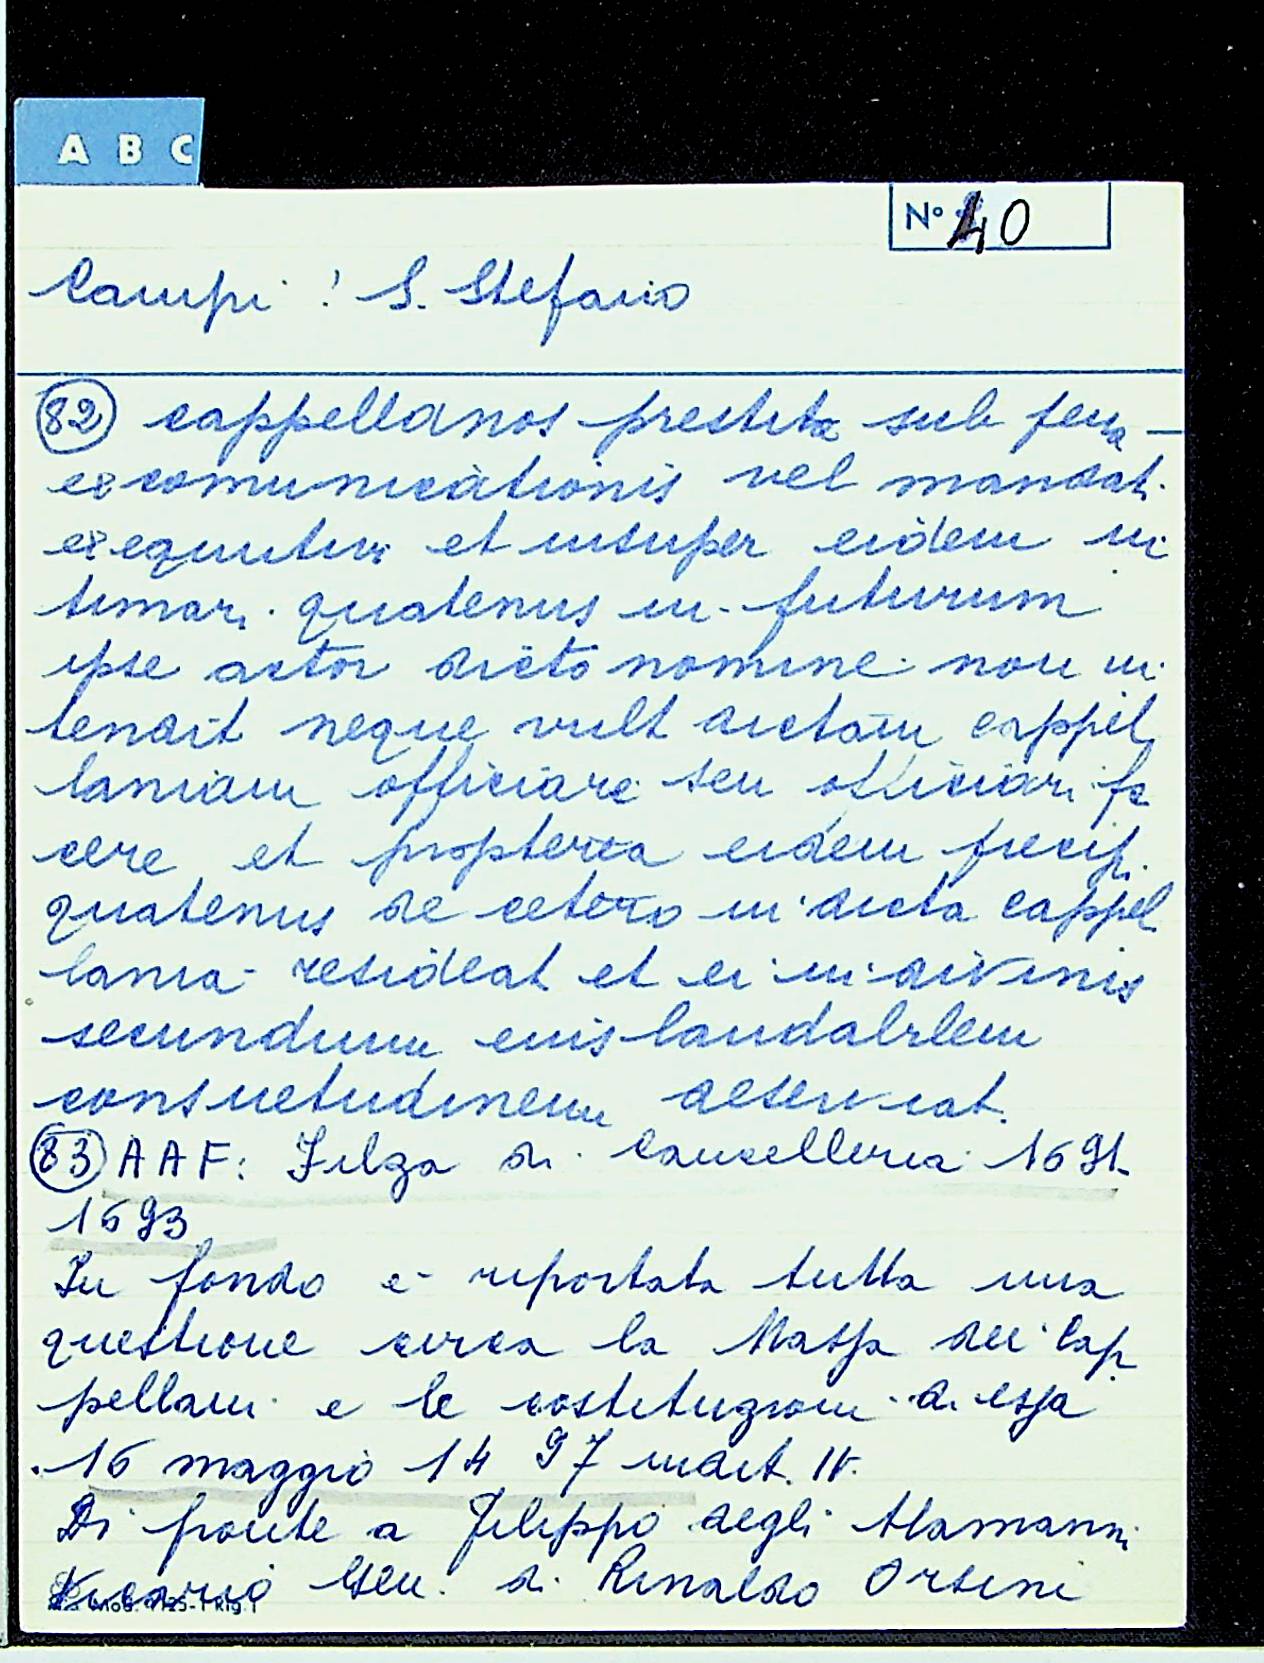 A B C
N° 40
Campi: S. Stefano
82 cappellanos prestita sub pena
excomunicationis vel mandat.
exequutivi et insuper eidem in
timari quatenus in futurum
ipse actor dicto nomine non in
tendit neque vult dictam cappel
laniam officiare seu officiari fa
cere et propterea eidem precip.
quatenus de cetero in dicta cappel
lania resideat et ei in divinis
secundum eius laudabilem
consuetudinem deserviat.
83 AAF: Filza di Cancelleria 1691-
1693
In fondo è riportata tutta una
questione circa la Massa dei Cap
pellani e le costituzioni di essa
16 maggio 1497 indict. IV.
Di fronte a Filippo degli Alamanni
Vicario Gen. di Rinaldo Orsini